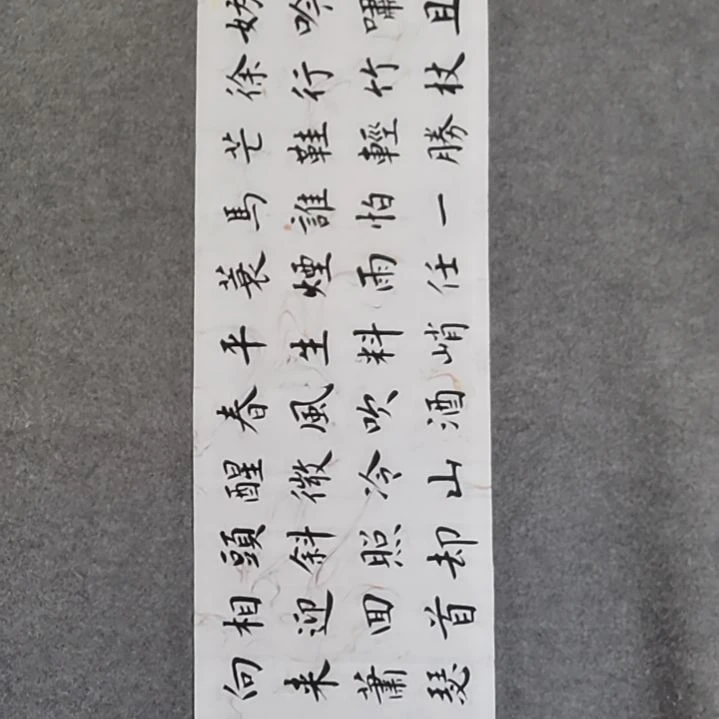 妨吟嘯且
徐行竹杖
芒鞋輕勝
馬誰怕一
蓑煙雨任
平生料峭
春風吹酒
醒微冷山
頭斜照却
相迎回首
向来蕭瑟